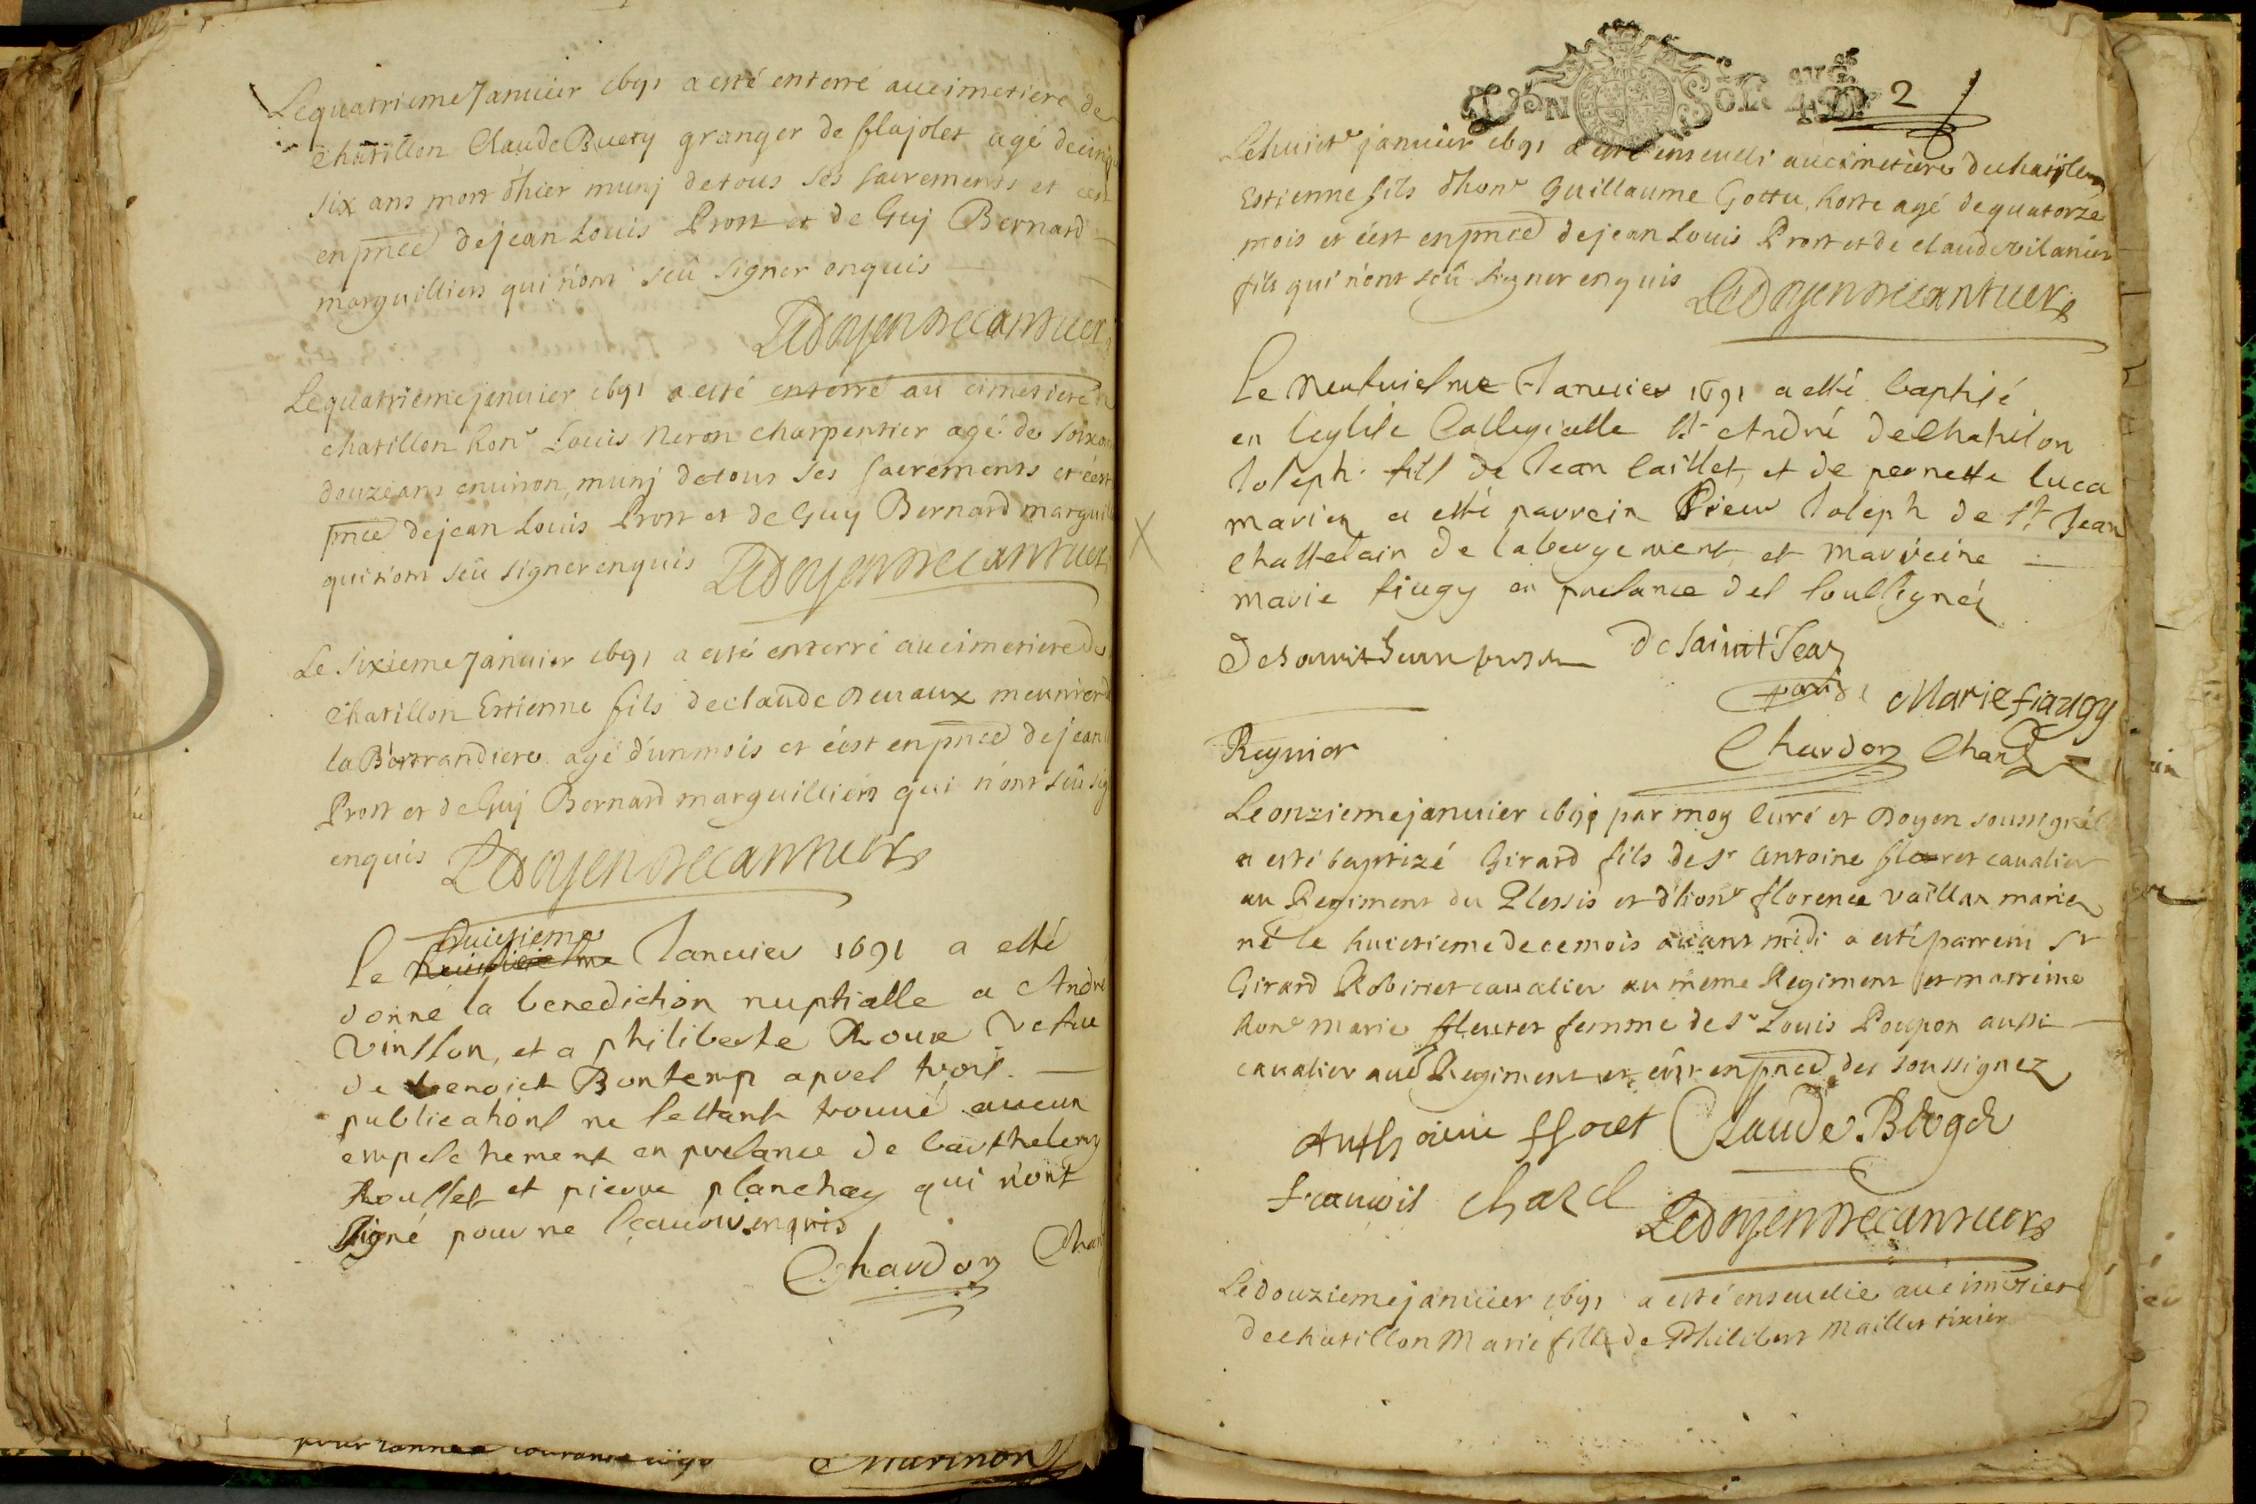 Le quatrieme Janvier 1691 a esté enterré au cimetiere de
chatillon Claude Buery granger de flajolet agé de cinq
six ans mort d'hier munj de tous ses sacrements et c'est
en pnce de jean Louis Prost et de Guj Bernard
marguilliers qui n'ont sceû signer enquis
Ledoyen Decantuers
Le quatrieme janvier 1691 a esté enterré au cimetiere de
chatillon hon^e Louis Neron charpentier agé de soixan
douze ans environ, munj de tous ses sacrements et c'est
pnce de jean Louis Prost et de Guy Bernard marguill
qui n'ont sceû signer enquis Ledoyen Decantuers
Le sixieme Janvier 1691 a esté enterré au cimetiere de
Chatillon Estienne fils de claude Devaux meunier d
la Bertrandiere agé d'un mois et c'est en pnce de jean
Prost et de Guj Bernard marguilliers qui n'ont sceû sig
enquis Ledoyen Decantuers
huictieme
Le Janvier 1691 a esté
donné la benediction nuptialle a André
Vinsson, et a philiberte Roux Vefue
de benoict Bontemp apres trois
publications ne sestant trouué aucun
empeschement en presance de barthelemy
Rousset et pierre planchey qui n'ont
signé pour ne scauoir enquis
Chardon Chan
pour lannée courante 1690 Marinon
2
Le huict^e janvier 1691 a esté enseveli au cimetiere de chatillon
Estienne fils d'hon^e Guillaume Gottu, hoste agé de quatorze
mois et c'est en pnce de jean Louis Prost et de claude vilanier
fils qui n'ont sceû signer enquis Ledoyen Decantuers
Le neufuiesme Januier 1691 a esté baptisé
en leglise Collegialle St André de Chatilon
Joseph fils de Jean Caillet, et de pernette luca
mariez a esté parrein Sieur Joseph de St Jean
Chastelain de labergement, et marreine
marie fiugy en presance des soussignéz
De Saint Jean
Marie fiaugy
Reynier Chardon Chan
Le onzieme janvier 1691 par moy curé et Doyen soussigné
a esté baptizé Girard fils de s^r Antoine floret cavalier
au Regiment du Plessis et d'hon^e florence vaillax mariez
né le huictieme de ce mois avant midi a esté parrein s^r
Girard Robinet cavalier au meme Regiment et marreine
hon^e marie fleuret femme de s^r Louis Poupon aussi
cavalier aud Regiment et c'est en pnce des soussignez
Anthoine fforet Claude Bloger
francois chazel Ledoyen Decantuers
Le douzieme janvier 1691 a esté ensevelie au cimetiere
de chatillon Marie fille de Philibert Maillet tixier